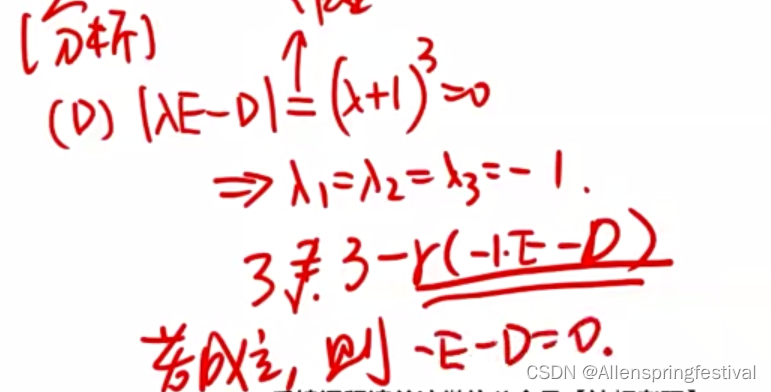 [分析]
(D) |λE-D| = (λ+1)³=0
⇒ λ₁=λ₂=λ₃=-1.
3 ≟ 3-r(-1·E-D)
若成立, 则 -E-D=0.
CSDN @Allenspringfestival